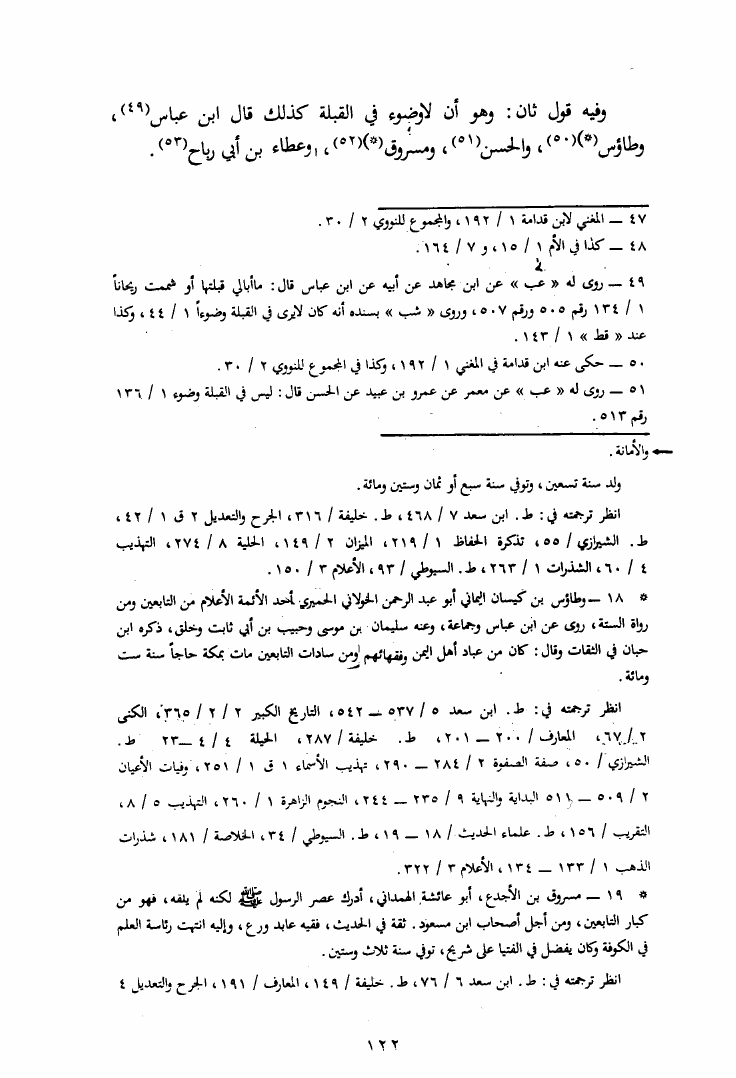 وفيه قول ثان: وهو أن لاوضوء في القبلة كذلك قال ابن عباس(٤٩)،
وطاؤس(*)(٥٠)، والحسن(٥١)، ومسروق(*)(٥٢)، وعطاء بن أبي رباح(٥٣).
٤٧ — المغني لابن قدامة ١ / ١٩٢، والمجموع للنووي ٢ / ٣٠.
٤٨ — كذا في الأم ١ / ١٥، و ٧ / ١٦٤.
٤٩ — روى له « عب » عن ابن مجاهد عن أبيه عن ابن عباس قال: ماأبالي قبلتها أو شممت ريحاناً
١ / ١٣٤ رقم ٥٠٥ ورقم ٥٠٧، وروى « شب » بسنده أنه كان لايرى في القبلة وضوءاً ١ / ٤٤، وكذا
عند « قط » ١ / ١٤٣.
٥٠ — حكى عنه ابن قدامة في المغني ١ / ١٩٢، وكذا في المجموع للنووي ٢ / ٣٠.
٥١ — روى له « عب » عن معمر عن عمرو بن عبيد عن الحسن قال: ليس في القبلة وضوء ١ / ١٣٦
رقم ٥١٣.
والأمانة.
ولد سنة تسعين، وتوفي سنة سبع أو ثمان وستين ومائة.
انظر ترجمته في: ط. ابن سعد ٧ / ٤٦٨، ط. خليفة / ٣١٦، الجرح والتعديل ٢ ق ١ / ٤٢،
ط. الشيرازي / ٥٥، تذكرة الحفاظ ١ / ٢١٩، الميزان ٢ / ١٤٩، الحلية ٨ / ٢٧٤، التهذيب
٤ / ٦٠، الشذرات ١ / ٢٦٣، ط. السيوطي / ٩٣، الأعلام ٣ / ١٥٠.
* ١٨ — وطاؤس بن كيسان اليماني أبو عبد الرحمن الخولاني الحميري أحد الأئمة الأعلام من التابعين ومن
رواة الستة، روى عن ابن عباس وجماعة، وعنه سليمان بن موسى وحبيب بن أبي ثابت وخلق، ذكره ابن
حبان في الثقات وقال: كان من عباد أهل اليمن وفقهائهم ومن سادات التابعين مات بمكة حاجاً سنة ست
ومائة.
انظر ترجمته في: ط. ابن سعد ٥ / ٥٣٧ — ٥٤٢، التاريخ الكبير ٢ / ٢ / ٣٦٥، الكنى
٢ / ٦٧، المعارف / ٢٠٠ — ٢٠١، ط. خليفة / ٢٨٧، الحيلة ٤ / ٤ —٢٣ ط.
الشيرازي / ٥٠، صفة الصفوة ٢ / ٢٨٤ — ٢٩٠، تهذيب الأسماء ١ ق ١ / ٢٥١، وفيات الأعيان
٢ / ٥٠٩ — ٥١١ البداية والنهاية ٩ / ٢٣٥ — ٢٤٤، النجوم الزاهرة ١ / ٢٦٠، التهذيب ٥ / ٨،
التقريب / ١٥٦، ط. علماء الحديث / ١٨ — ١٩، ط. السيوطي / ٣٤، الخلاصة / ١٨١، شذرات
الذهب ١ / ١٣٣ — ١٣٤، الأعلام ٣ / ٣٢٢.
* ١٩ — مسروق بن الأجدع، أبو عائشة الهمداني، أدرك عصر الرسول ﷺ لكنه لم يلقه، فهو من
كبار التابعين، ومن أجل أصحاب ابن مسعود. ثقة في الحديث، فقيه عابد ورع، وإليه انتهت رئاسة العلم
في الكوفة وكان يفضل في الفتيا على شريح، توفي سنة ثلاث وستين.
انظر ترجمته في: ط. ابن سعد ٦ / ٧٦، ط. خليفة / ١٤٩، المعارف / ١٩١، الجرح والتعديل ٤
١٢٢